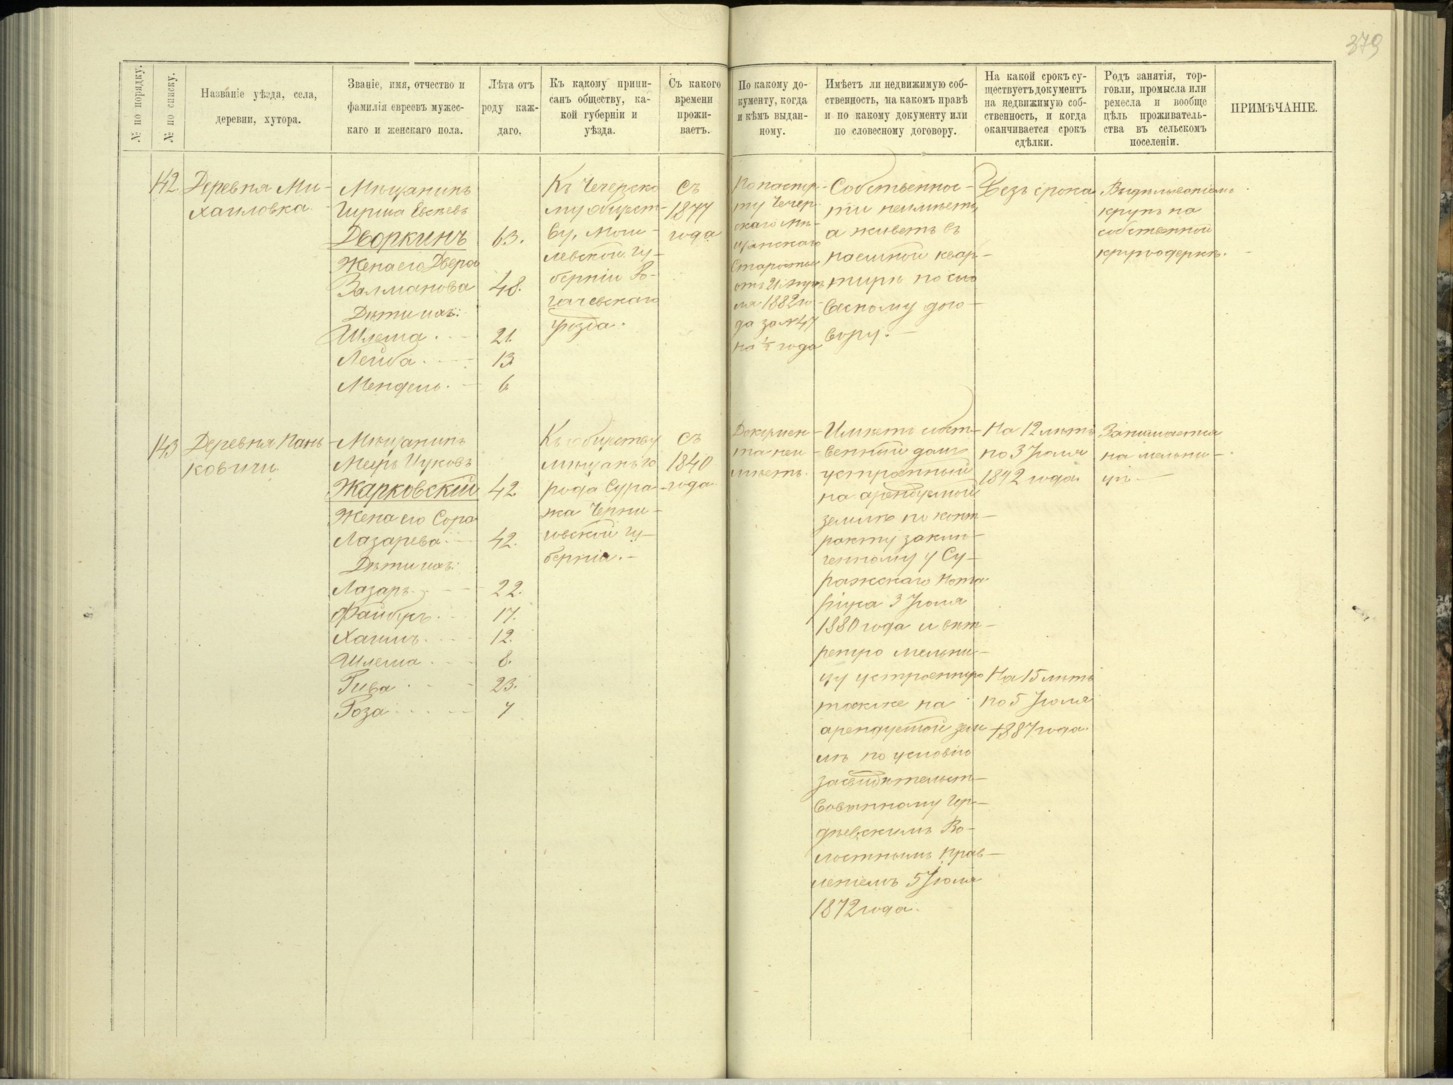 379
№ по порядку.
№ по списку.
Названіе уѣзда, села,
деревни, хутора.
Званіе, имя, отчество и
фамилія евреевъ мужес-
каго и женскаго пола.
Лѣта отъ
роду каж-
даго.
Къ какому припи-
санъ обществу, ка-
кой губерніи и
уѣзда.
Съ какого
времени
прожи-
ваетъ.
По какому до-
кументу, когда
и кѣмъ выдан-
ному.
Имѣетъ ли недвижимую соб-
ственность, на какомъ правѣ
и по какому документу или
по словесному договору.
На какой срокъ су-
ществуетъ документъ
на недвижимую соб-
ственность, и когда
оканчивается срокъ
сдѣлки.
Родъ занятія, тор-
говли, промысла или
ремесла и вообще
цѣль проживатель-
ства въ сельскомъ
поселеніи.
ПРИМѢЧАНІЕ.
142
Деревня Ми-
хайловка
Мѣщанинъ
Дворкинъ
Жена его Двера
Залманова
Дѣти ихъ:
Шлема
Лейба
Мендель
63.
48.
21
13
6
Къ Чечерско
му общест-
ву, Моги-
левской гу-
берніи Ро-
гачевскаго
уѣзда.
Съ
1877
года
По паспор-
ту Чечер-
скаго Мѣ-
щанскаго
Старосты
ля 1882 го-
да за №47
на ½ года
Собственнос-
ти неимѣетъ,
а живетъ въ
наемной квар-
тирѣ по сло
весному дого-
вору.
Безъ срока
крупъ на
собственной
круподеркѣ.
143
Деревня Пань
ковичи
Мѣщанинъ
Жарковскій
Жена его Сора
Лазарева
Дѣти ихъ:
Лазарь
Файбусъ
Хаимъ
Шлема
Рива
Роза
42
42.
22.
17.
12.
8.
23.
7
Къ обществу
мѣщанъ го
рода Сура-
жа Черни-
говской гу-
берніи.
Съ
1840
года
Докумен-
та неи-
мѣетъ.
Имѣетъ собст-
венный домъ
устроенный
на арендуемой
землѣ по конт-
ракту заклю-
ченному у Су-
ражскаго Нота
ріуса 3 Іюля
1880 года и вет-
реную мельни-
цу устроенную
также на
арендуемой зем
лѣ по условію
засвидѣтельст-
вованному Гор-
деевскимъ Во-
лостнымъ Прав-
леніемъ 5 Іюля
1872 года.
На 12 лѣтъ
по 3 Іюля
1892 года
На 15 лѣтъ
по 5 Іюля
1887 года.
Занимается
на мельни-
цѣ